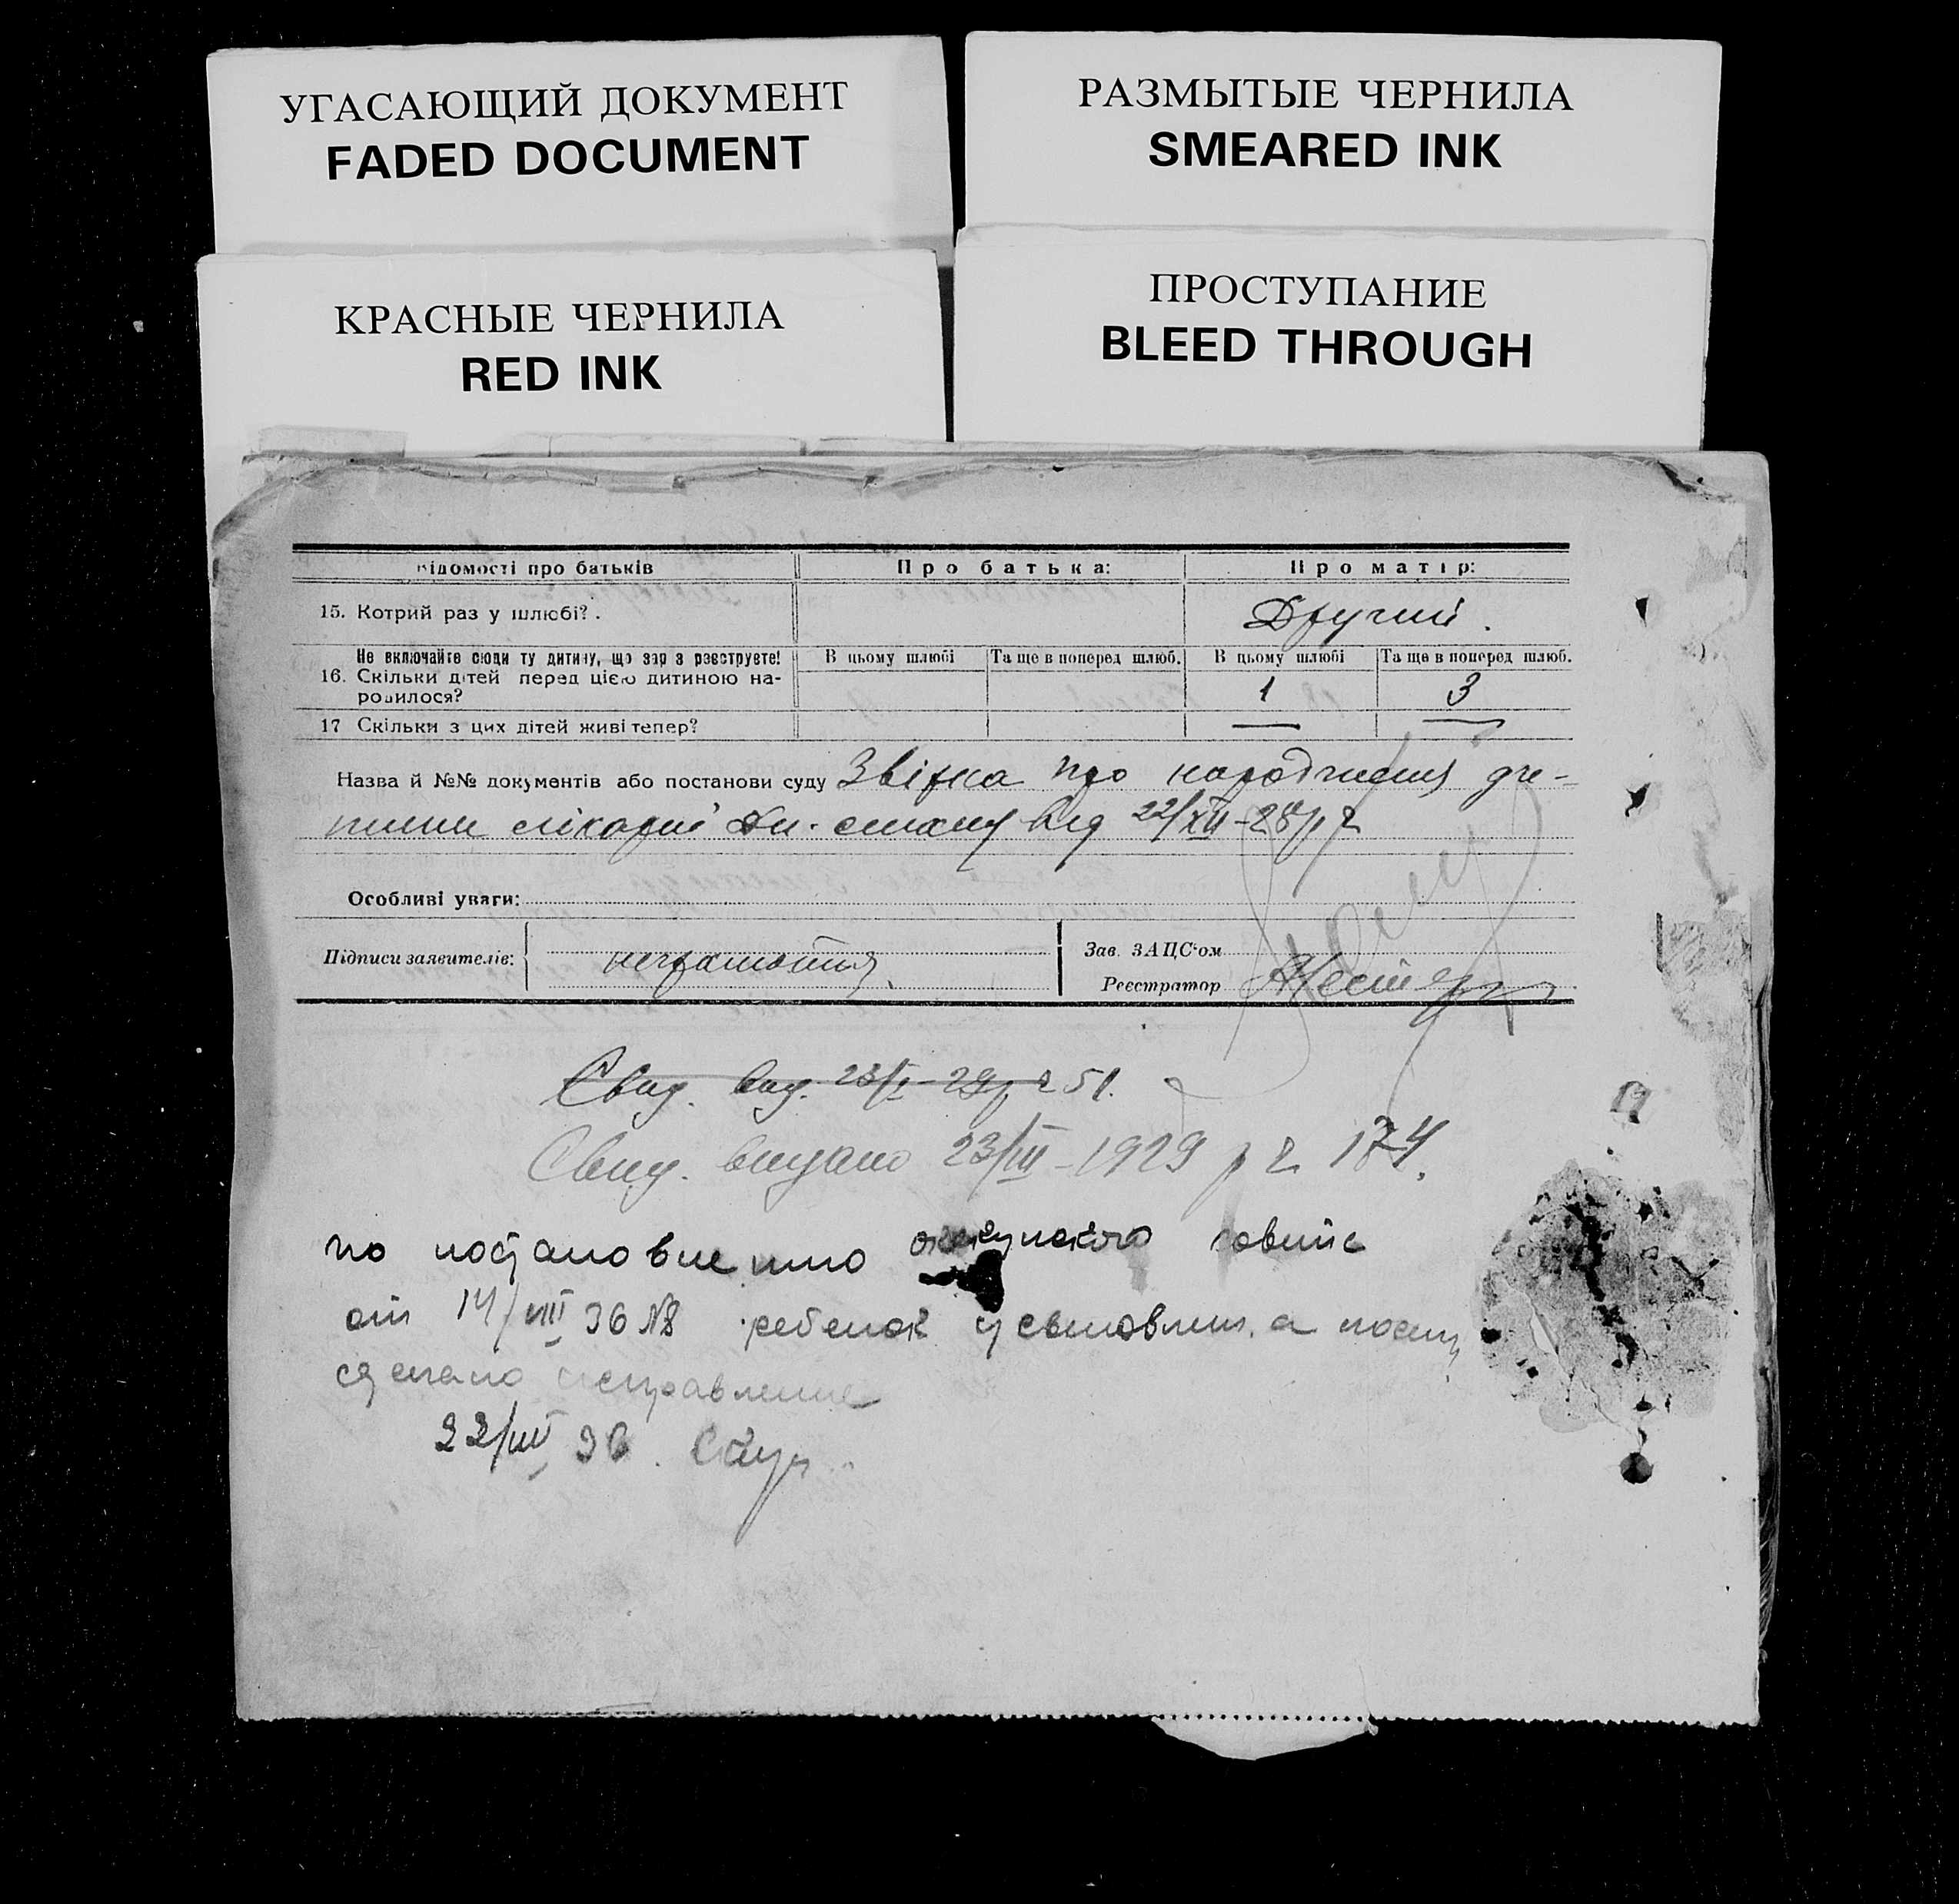 УГАСАЮЩИЙ ДОКУМЕНТ
FADED DOCUMENT
РАЗМЫТЫЕ ЧЕРНИЛА
SMEARED INK
КРАСНЫЕ ЧЕРНИЛА
RED INK
ПРОСТУПАНИЕ
BLEED THROUGH
Відомості про батьків Про батька: Про матір:
15. Котрий раз у шлюбі?. Другий.
Не включайте сюди ту дитину, що зараз реєструєте! В цьому шлюбі Та ще в поперед шлюб. В цьому шлюбі Та ще в поперед шлюб.
16. Скільки дітей перед цією дитиною на-
родилося? 1 3
17 Скільки з цих дітей живі тепер? — —
Назва й №№ документів або постанови суду Звістка про народження ди-
тини лікарні ст. від 22/XII-28 р
Особливі уваги:
Підписи заявителів: неграмотня.
Зав. ЗАЦС'ом
Реєстратор
Свид. вид. 23/I-29р 51.
Свид. видано 23/III-1929 р 174.
по постановлению опекунского совета
от 14/VIII 36 №8 ребенок усыновлен, а посему
сделано исправление
22/VIII 36.